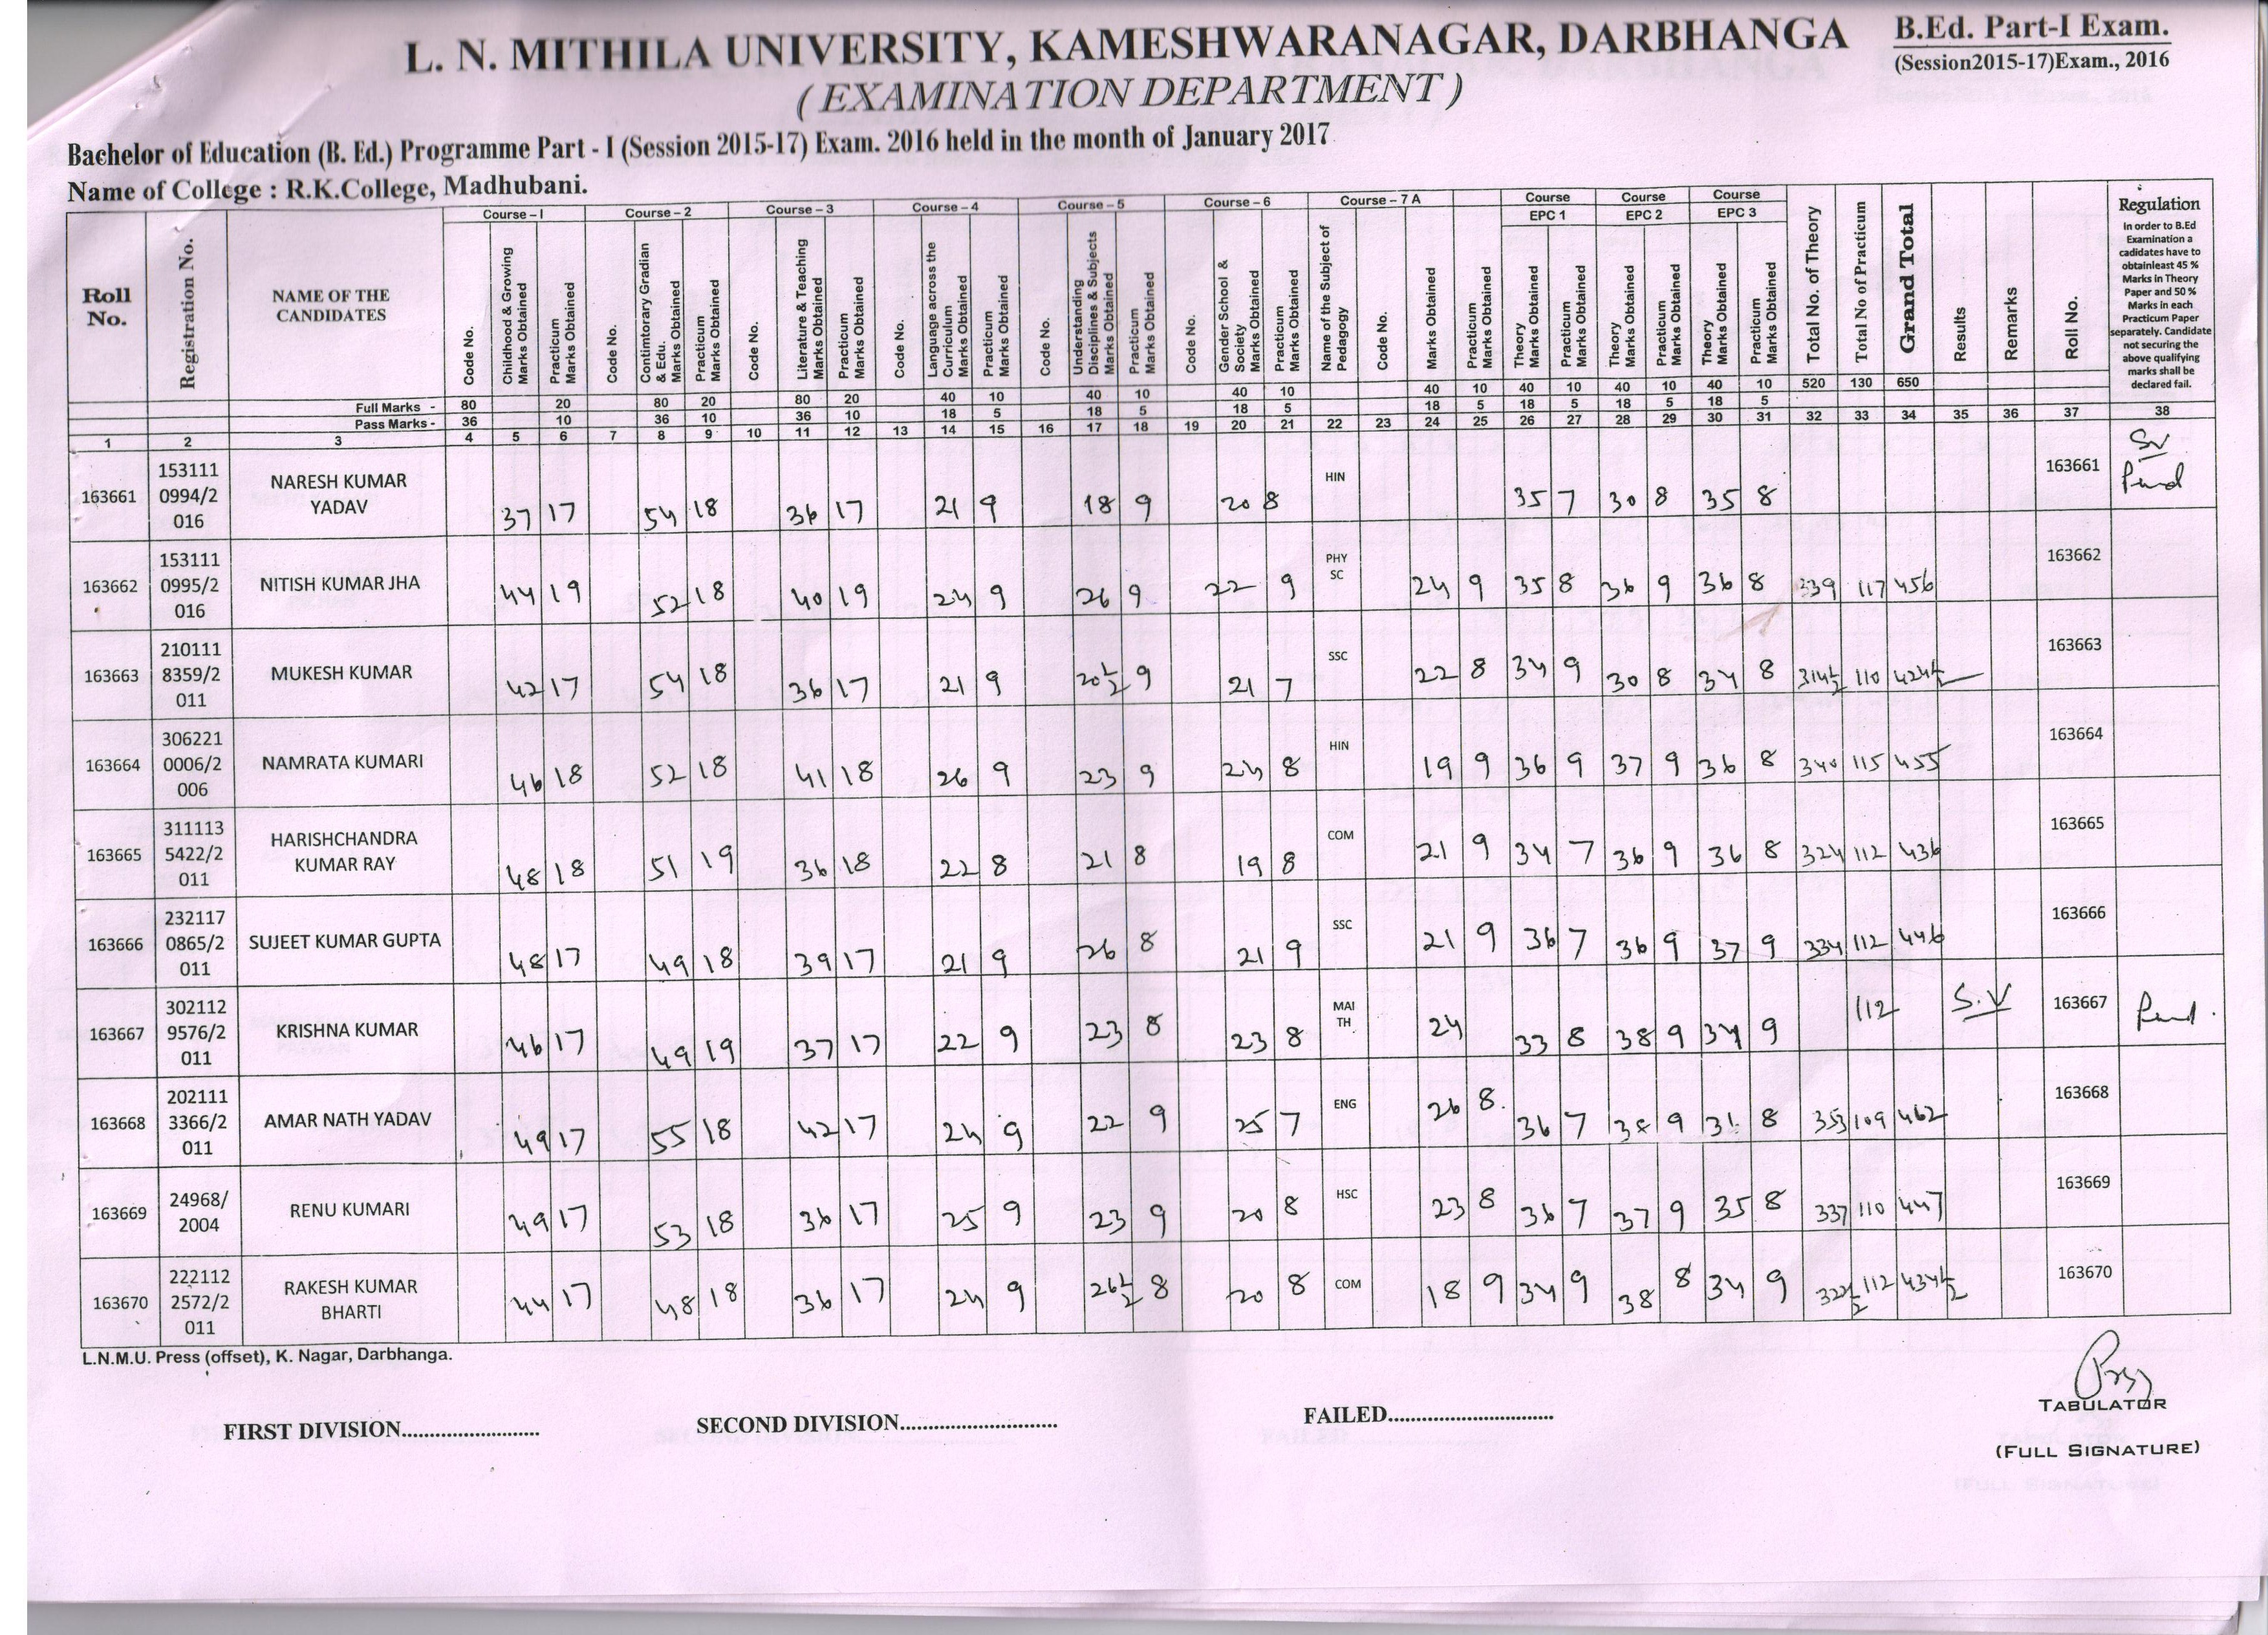 L. N. MITHILA UNIVERSITY, KAMESHWARANAGAR, DARBHANGA
B.Ed. Part-I Exam.
(Session2015-17)Exam., 2016
( EXAMINATION DEPARTMENT )
Bachelor of Education (B. Ed.) Programme Part - I (Session 2015-17) Exam. 2016 held in the month of January 2017
Name of College : R.K.College, Madhubani.
Course – I Course – 2 Course – 3 Course – 4 Course – 5 Course – 6 Course – 7 A Course Course Course
EPC 1 EPC 2 EPC 3
Roll No.
Registration No.
NAME OF THE CANDIDATES
Code No.
Childhood & Growing Marks Obtained
Practicum Marks Obtained
Code No.
Contimtorary Gradian & Edu. Marks Obtained
Practicum Marks Obtained
Code No.
Literature & Teaching Marks Obtained
Practicum Marks Obtained
Code No.
Language across the Curriculum Marks Obtained
Practicum Marks Obtained
Code No.
Understanding Disciplines & Subjects Marks Obtained
Practicum Marks Obtained
Code No.
Gender School & Society Marks Obtained
Practicum Marks Obtained
Name of the Subject of Pedagogy
Code No.
Marks Obtained
Practicum Marks Obtained
Theory Marks Obtained
Practicum Marks Obtained
Theory Marks Obtained
Practicum Marks Obtained
Theory Marks Obtained
Practicum Marks Obtained
Total No. of Theory
Total No of Practicum
Grand Total
Results
Remarks
Roll No.
Regulation
In order to B.Ed
Examination a
cadidates have to
obtainleast 45 %
Marks in Theory
Paper and 50 %
Marks in each
Practicum Paper
separately. Candidate
not securing the
above qualifying
marks shall be
declared fail.
Full Marks - 80 20 80 20 80 20 40 10 40 10 40 10 40 10 40 10 40 10 40 10 520 130 650
Pass Marks - 36 10 36 10 36 10 18 5 18 5 18 5 18 5 18 5 18 5 18 5
1 2 3 4 5 6 7 8 9 10 11 12 13 14 15 16 17 18 19 20 21 22 23 24 25 26 27 28 29 30 31 32 33 34 35 36 37 38
163661 153111 0994/2 016 NARESH KUMAR YADAV 37 17 54 18 36 17 21 9 18 9 20 8 HIN 35 7 30 8 35 8 163661
163662 153111 0995/2 016 NITISH KUMAR JHA 44 19 52 18 40 19 24 9 26 9 22 9 PHY SC 24 9 35 8 36 9 36 8 339 117 456 163662
163663 210111 8359/2 011 MUKESH KUMAR 42 17 54 18 36 17 21 9 20½ 9 21 7 SSC 22 8 34 9 30 8 34 8 314½ 110 424½ 163663
163664 306221 0006/2 006 NAMRATA KUMARI 46 18 52 18 41 18 26 9 23 9 24 8 HIN 19 9 36 9 37 9 36 8 340 115 455 163664
163665 311113 5422/2 011 HARISHCHANDRA KUMAR RAY 48 18 51 19 36 18 22 8 21 8 19 8 COM 21 9 34 7 36 9 36 8 324 112 436 163665
163666 232117 0865/2 011 SUJEET KUMAR GUPTA 48 17 49 18 39 17 21 9 26 8 21 9 SSC 21 9 36 7 36 9 37 9 334 112 446 163666
163667 302112 9576/2 011 KRISHNA KUMAR 46 17 49 19 37 17 22 9 23 8 23 8 MAI TH 24 33 8 38 9 34 9 112 S.V 163667
163668 202111 3366/2 011 AMAR NATH YADAV 49 17 55 18 42 17 24 9 22 9 25 7 ENG 26 8. 36 7 38 9 8 353 109 462 163668
163669 24968/ 2004 RENU KUMARI 49 17 53 18 36 17 25 9 23 9 20 8 HSC 23 8 36 7 37 9 35 8 337 110 447 163669
163670 222112 2572/2 011 RAKESH KUMAR BHARTI 44 17 48 18 36 17 24 9 26½ 8 20 8 COM 18 9 34 9 38 8 34 9 322½ 112 434½ 163670
L.N.M.U. Press (offset), K. Nagar, Darbhanga.
FIRST DIVISION..........................
SECOND DIVISION.............................
FAILED..............................
TABULATOR
(FULL SIGNATURE)